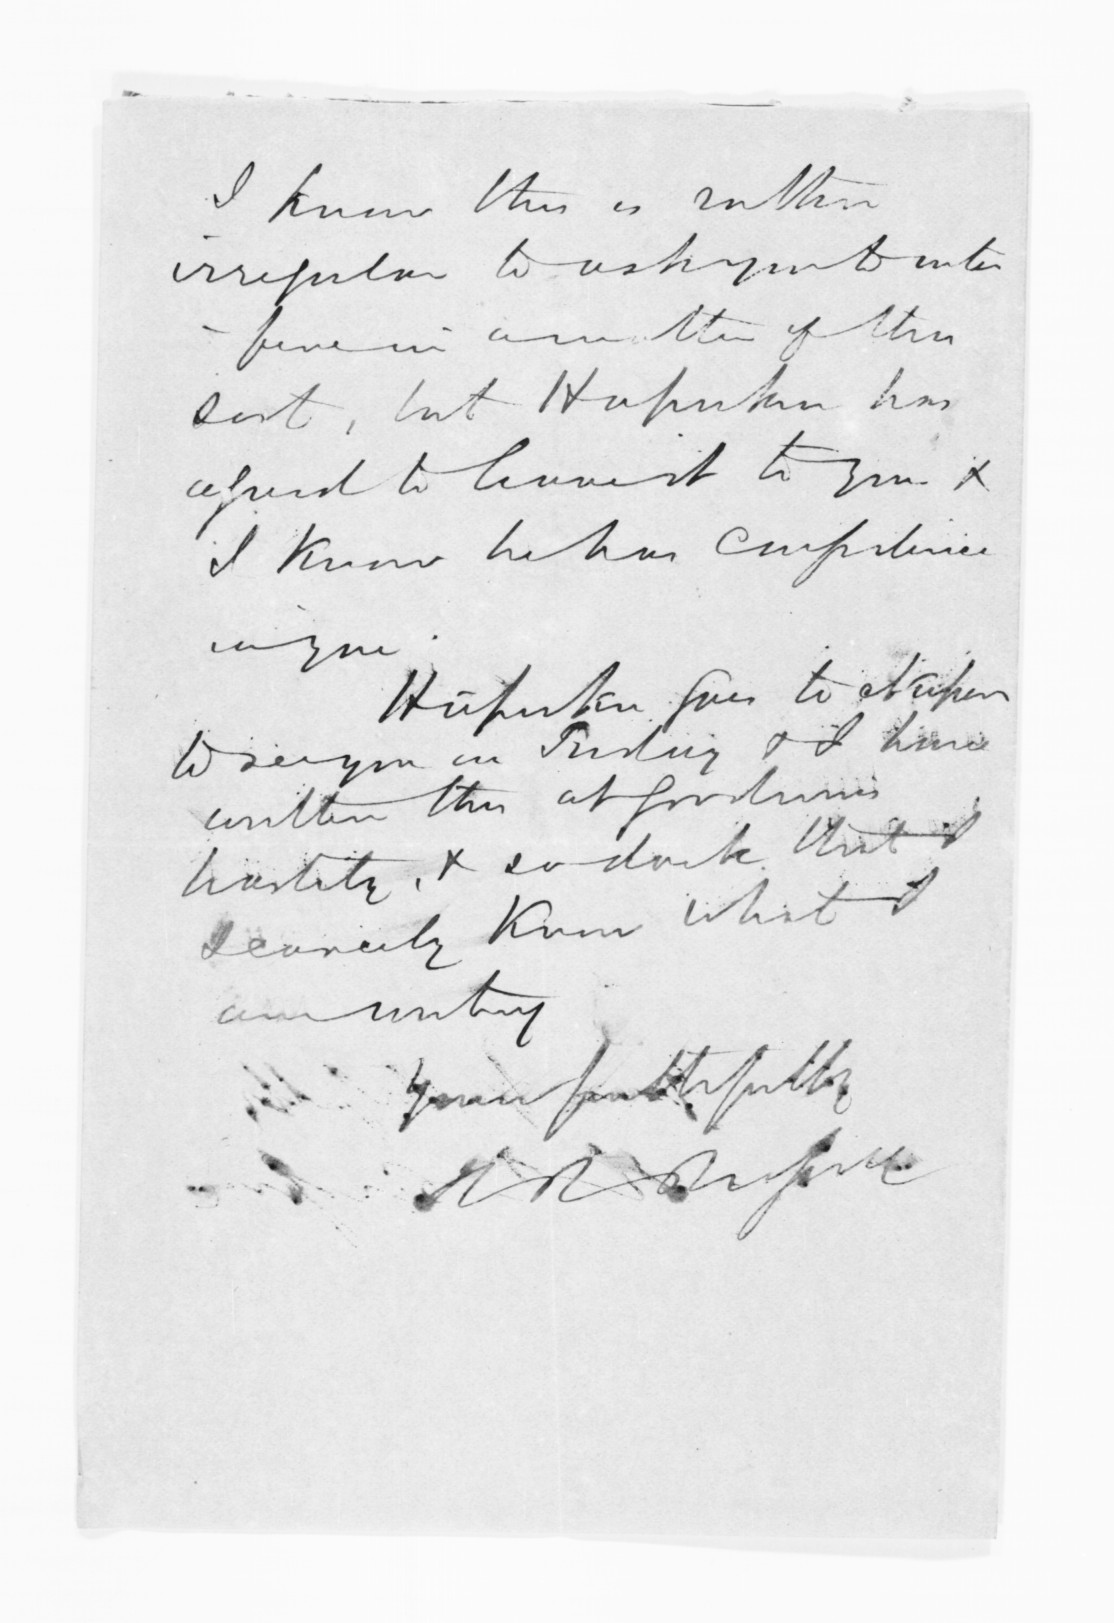 I know this is rather
irregular to ask you to inter
-fere in a matter of this
sort, but Hapuku has
agreed to leave it to you &
I know he has confidence
in you.
Hapuku goes to Napier
to see you on Friday & I have
written this at Goodwins
hastily, & so dark that I
scarcely know what I
am writing
Yours faithfully
H R Russell